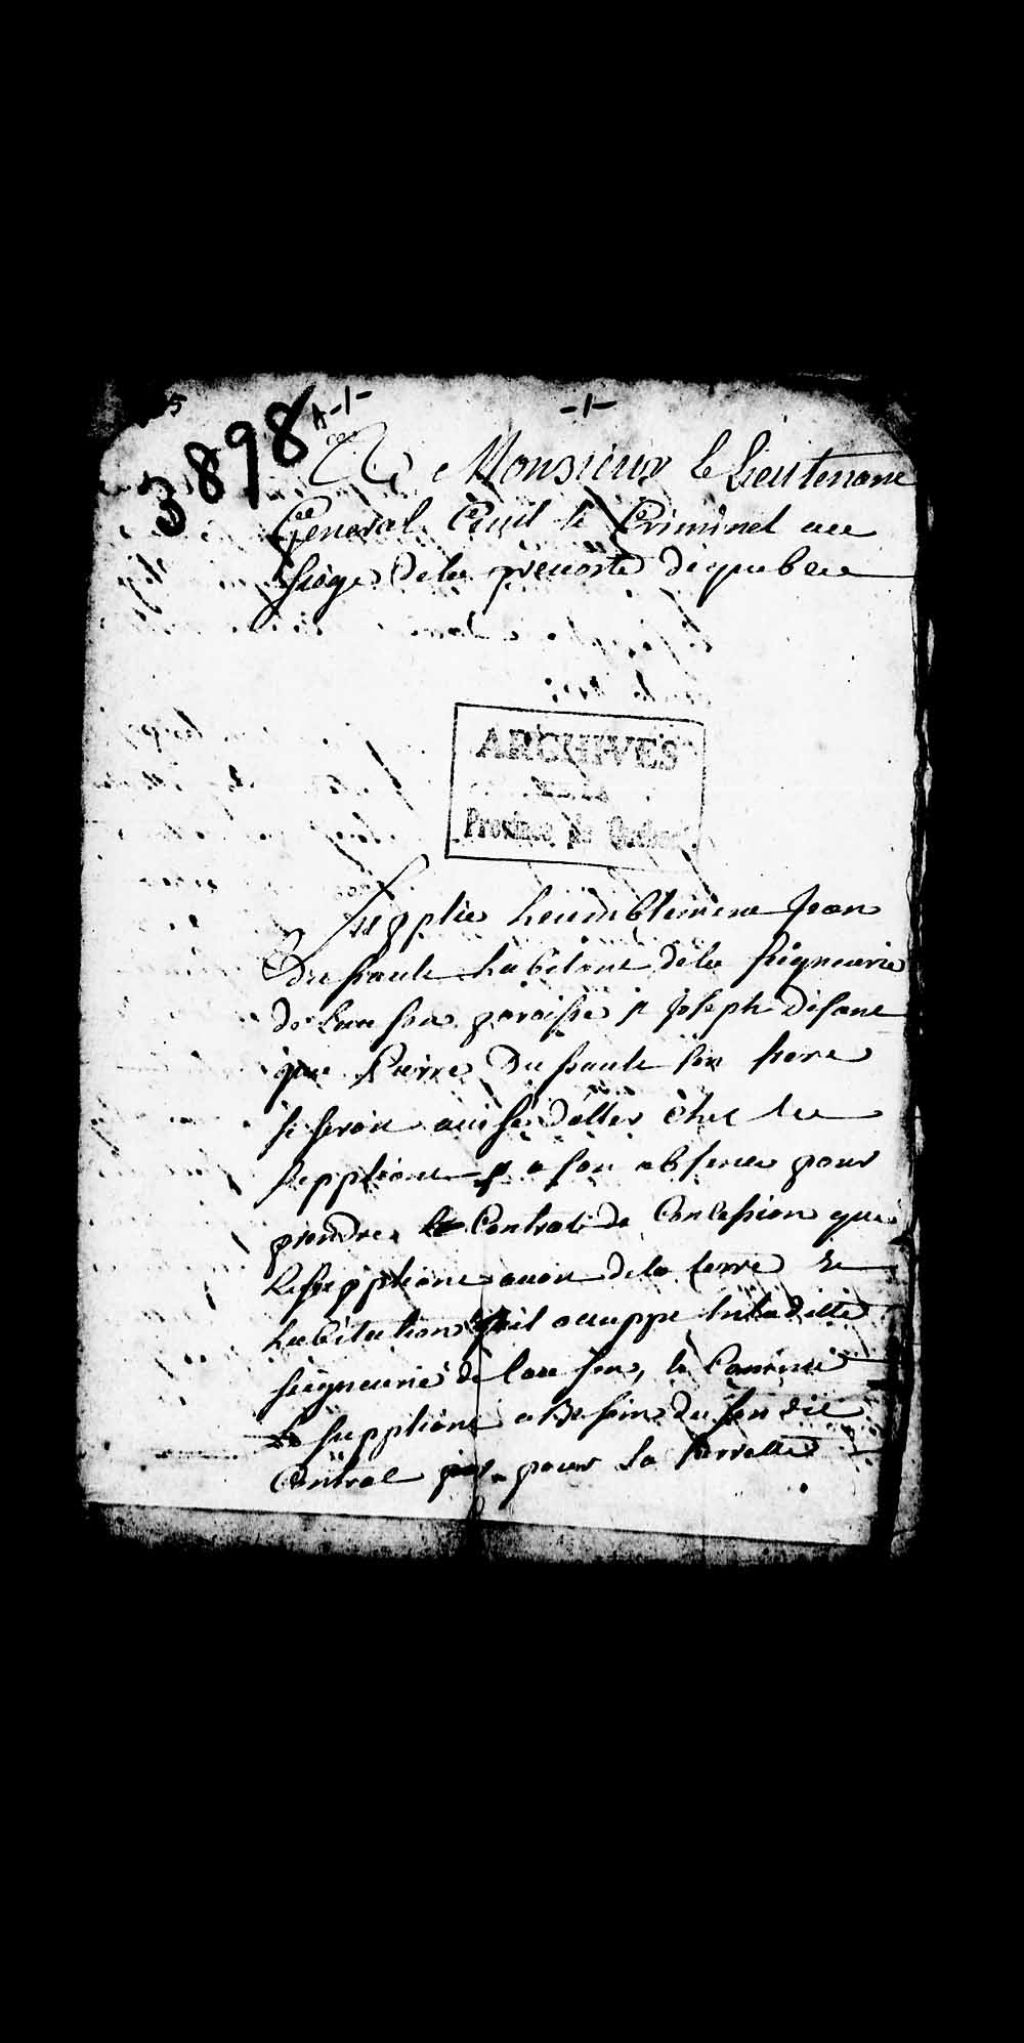 3898
A-1-
-1-
A Monsieur le Lieutenant
General Ciuil et Criminel au
Siege dela preuosté de quebec
ARCHIVES
DE LA
Province de Québec
Supplie humblement Jean
Du fault habitant dela seigneurie
de Lauson paroisse st Joseph disant
que Pierre Du fault son frere
se seroit auisé daller chez le
suppliant a son absence pour
prendre le Contrat de Concession que
le suppliant auoit dela terre et
habitation quil occuppe en laditte
seigneurie de lauson, et Comme
le suppliant a Besoin du susdit
Contrat pour la